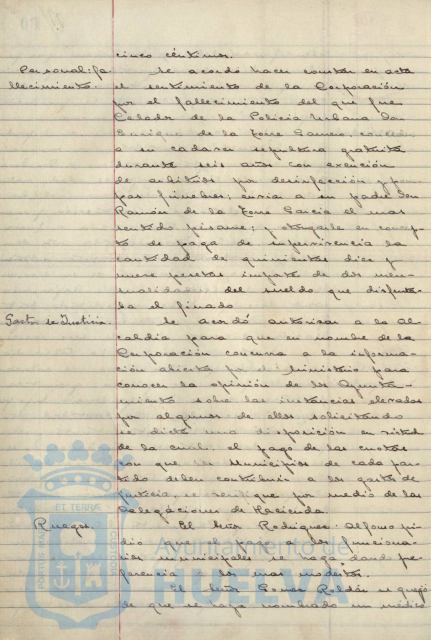 cinco céntimos.
Personal: fa-
llecimiento.
Se acordó hacer constar en acta
el sentimiento de la Corporación
por el fallecimiento del que fue
Celador de la Policía Urbana Don
Enrique de la Torre Gamero, conceder
a su cadaver sepultura gratuita
durante seis años con exención
de arbitrios por desinfección y pom-
pas fúnebres; enviar a su padre Don
Ramón de la Torre García el mas
sentido pésame; y otorgarle en concep-
to de paga de supervivencia la
cantidad de quinientas diez y
nueve pesetas importe de dos men-
sualidades del sueldo que disfruta-
ba el finado.
Gastos de Justicia.
Se acordó autorizar a la Al-
caldía para que en nombre de la
Corporación concurra a la informa-
ción abierta por el Ministerio para
conocer la opinión de los Ayunta-
mientos sobre las instancias elevadas
por algunos de ellos solicitando
se dicte una disposición en virtud
de la cual, el pago de las cuotas
con que los Municipios de cada par-
tido deben contribuir a los gastos de
Justicia, se verifique por medio de las
Delegaciones de Hacienda.
Ruegos.
El Señor Rodriguez Alfonso pi-
dió que el pago a los funciona-
rios municipales se haga dando pre-
ferencia a los mas modestos.
El Señor Gomez Roldán se quejó
de que se haya nombrado un médico
Ayuntamiento de
HUELVA